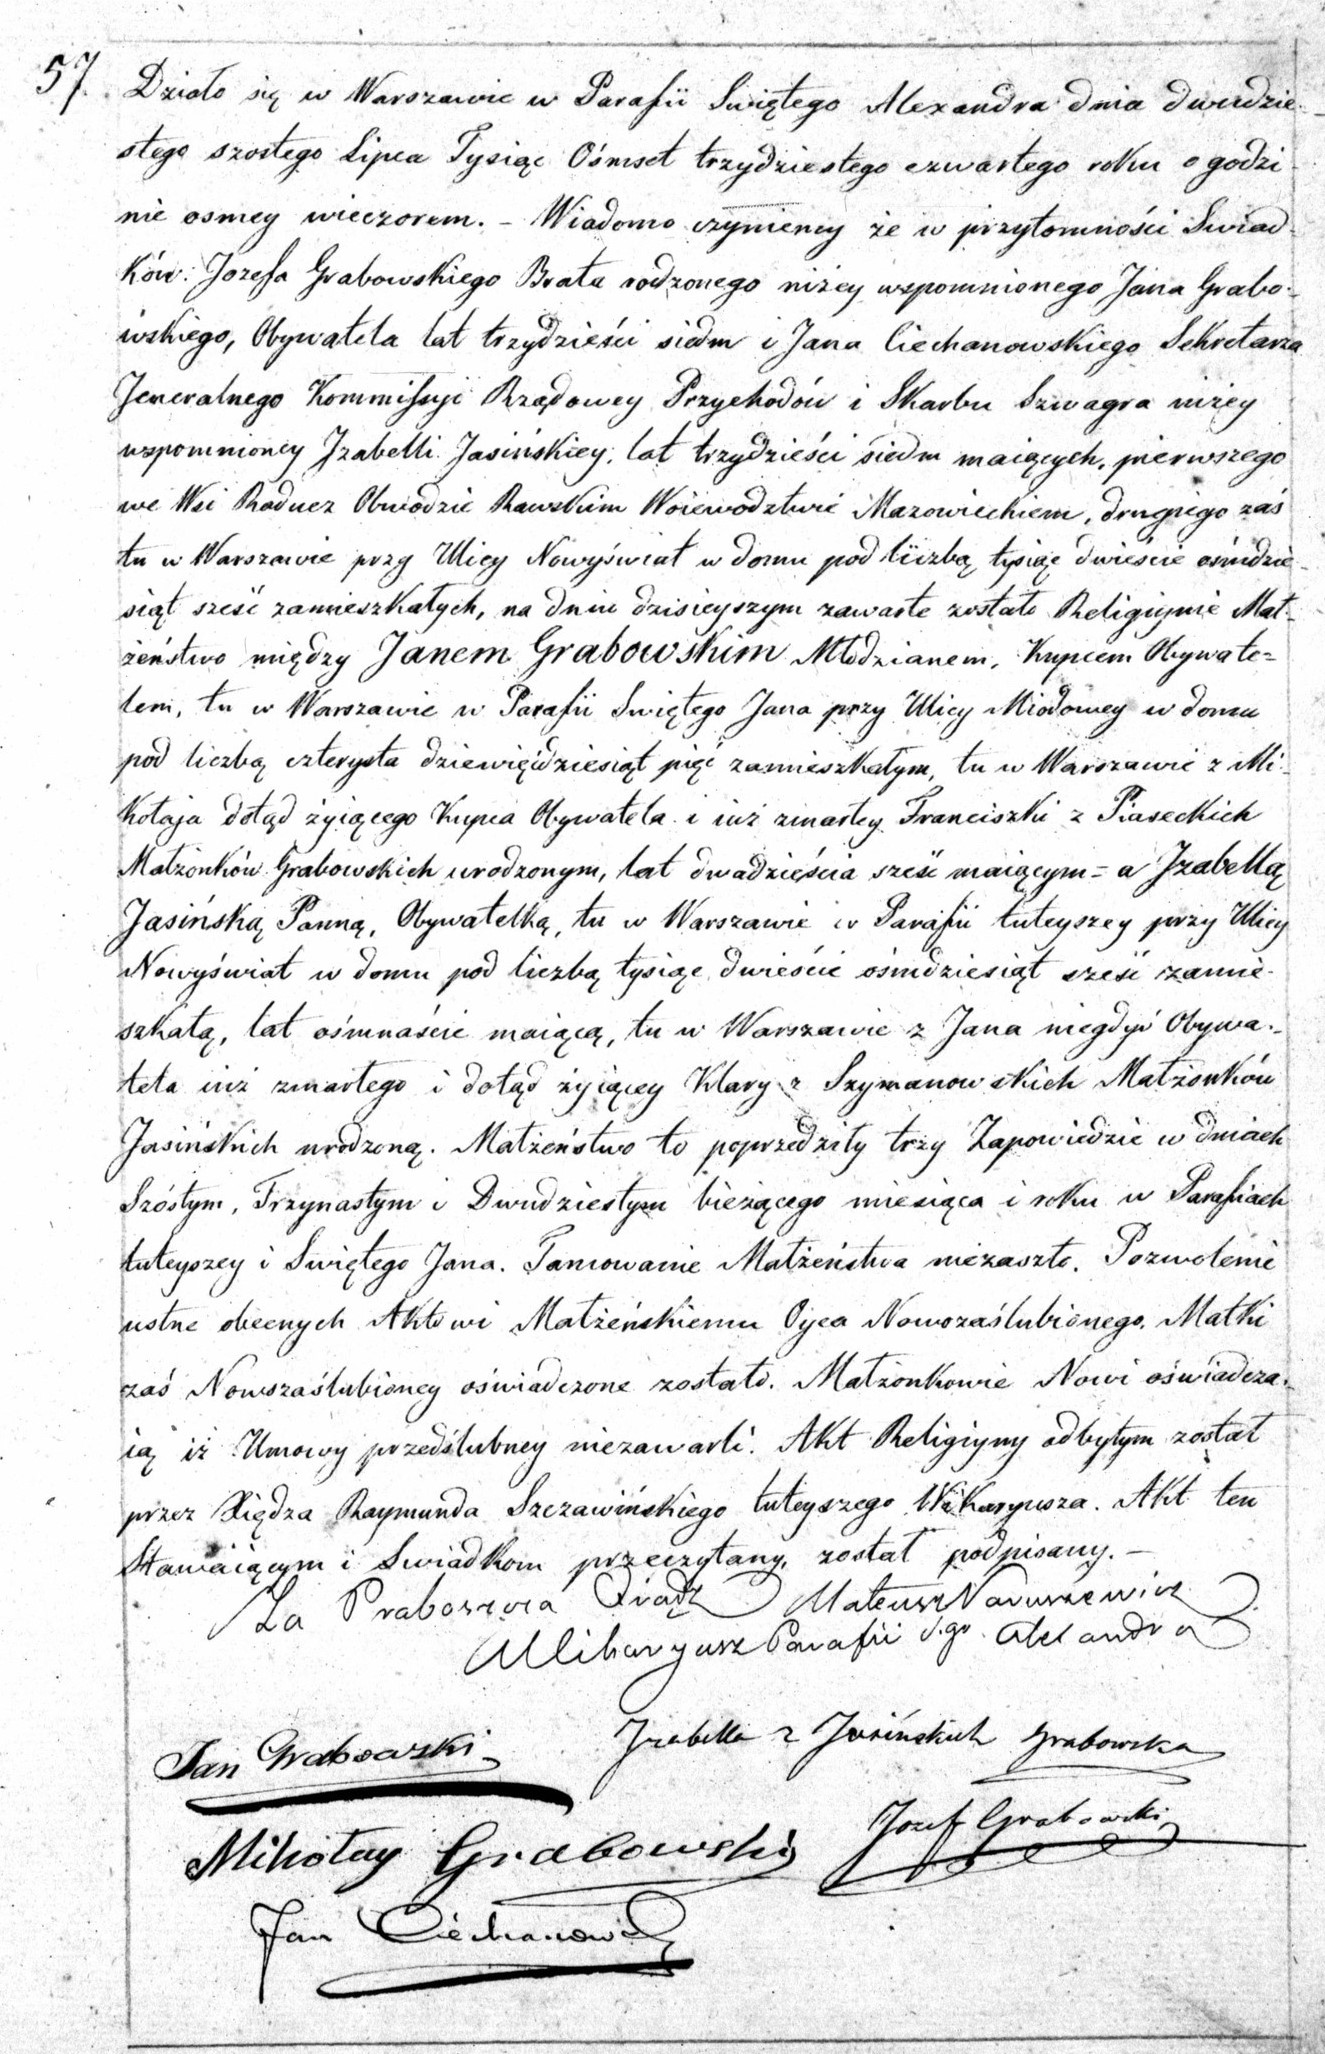 57.
Działo się w Warszawie w Parafii Swiętego Alexandra dnia dwudzie-
stego szostego Lipca Tysiąc Ośmset trzydziestego czwartego roku o godzi-
nie osmey wieczorem. – Wiadomo czyniemy że w przytomności Swiad-
ków: Jozefa Grabowskiego Brata rodzonego niżey wspomnionego Jana Grabo-
wskiego, Obywatela lat trzydzieści siedm i Jana Ciechanowskiego Sekretarza
Jeneralnego Kommissyi Rządowey Przychodów i Skarbu Szwagra niżey
wspomnioney Jzabelli Jasińskiey, lat trzydzieści siedm maiących, pierwszego
we Wsi Raducz Obwodzie Rawskim Woiewodztwie Mazowieckiem, drugiego zaś
tu w Warszawie przy Ulicy Nowyświat w domu pod liczbą tysiąc dwieście ośmdzie-
siąt sześć zamieszkałych, na dniu dzisieyszym zawarte zostało Religiynie Mał-
żeństwo między Janem Grabowskim Młodzianem, Kupcem Obywate=
lem, tu w Warszawie w Parafii Swiętego Jana przy Ulicy Miodowey w domu
pod liczbą czterysta dziewięćdziesiąt pięć zamieszkałym, tu w Warszawie z Mi-
kołaja dotąd żyiącego Kupca Obywatela i iuż zmarłey Franciszki z Piaseckich
Małżonków Grabowskich urodzonym, lat dwadzieścia sześć maiącym = a Jzabellą
Jasińską Panną, Obywatelką, tu w Warszawie w Parafii tuteyszey przy Ulicy
Nowyświat w domu pod liczbą tysiąc dwieście ośmdziesiąt sześć zamie-
szkałą, lat ośmnaście maiącą, tu w Warszawie z Jana niegdyś Obywa-
tela iuż zmarłego i dotąd żyiącey Klary z Szymanowskich Małżonków
Jasińskich urodzoną. Małżeństwo to poprzedziły trzy Zapowiedzie w dniach
Szóstym, Trzynastym i Dwudziestym bieżącego miesiąca i roku w Parafiach
tuteyszey i Swiętego Jana. Tamowanie Małżeństwa niezaszło. Pozwolenie
ustne obecnych Aktowi Małżeńskiemu Oyca Nowozaślubionego, Matki
zaś Nowozaślubioney oświadczone zostało. Małżonkowie Nowi oświadcza-
ią iż Umowy przedślubney niezawarli. Akt Religiyny odbytym został
przez Xiędza Raymunda Szczawińskiego tuteyszego Wikaryusza. Akt ten
Stawaiącym i Swiadkom przeczytany, został podpisany. –
Za Proboszcza Xiądz Mateusz Naruszewicz
Wikaryusz Parafii S.go Alexandra
Jan Grabowski
Jzabella z Jasińskich Grabowska
Mikołay Grabowski
Jozef Grabowski
Jan Ciechanowski